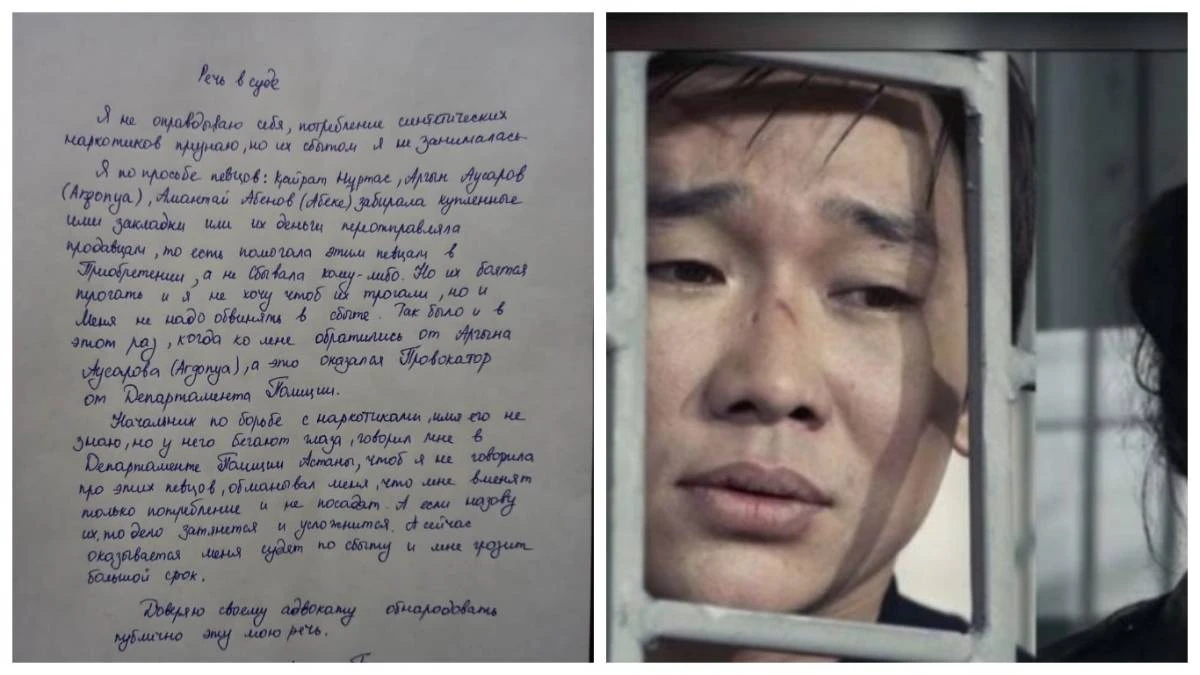 Речь в суде
Я не оправдываю себя, потребление синтетических
наркотиков признаю, но их сбытом я не занималась
Я по просьбе певцов: Қайрат Нұртас, Аргын Аусаров
(Агдопуа), Амантай Абенов (Абеке) забирала купленные
ими закладки или их деньги переотправляла
продавцам, то есть помогала этим певцам в
Приобретении, а не Сбывала кому-либо. Но их боятся
трогать и я не хочу чтоб их трогали, но и
Меня не надо обвинять в сбыте. Так было и в
этот раз, когда ко мне обратились от Аргына
Аусарова (Агдопуа), а это оказался Провокатор
от Департамента Полиции.
Начальник по борьбе с наркотиками, имя его не
знаю, но у него бегают глаза, говорил мне в
Департаменте Полиции Астаны, чтоб я не говорила
про этих певцов, обманывал меня, что мне вменят
только потребление и не посадят. А если назову
их, то дело затянется и усложнится. А сейчас
оказывается меня судят по сбыту и мне грозит
большой срок.
Доверяю своему адвокату обнародовать
публично эту мою речь.